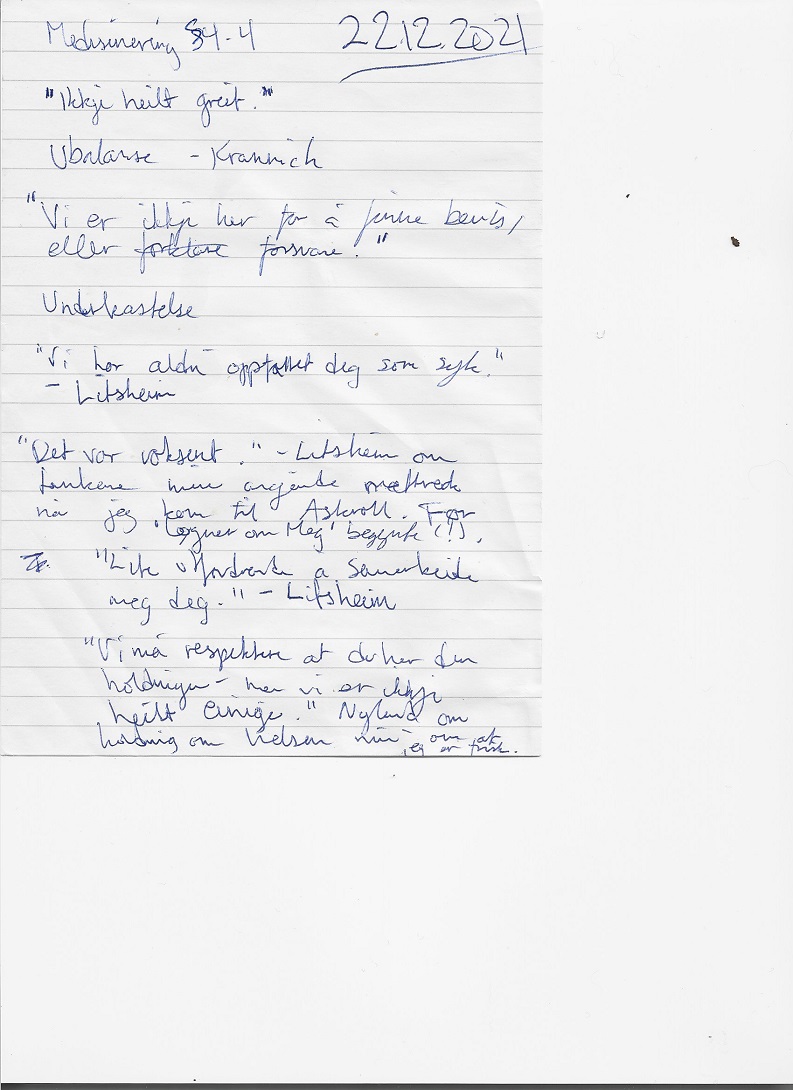 Medisinering §4-4 22.12.2021
"Ikkje heilt greit."
Ubalanse - Krannich
"Vi er ikkje her for å finne bevis,
eller forklare forsvare."
Underkastelse
"Vi har aldri oppfattet deg som syk."
- Litsheim
"Det var voksent." - Litsheim om
tankene mine angående
når jeg kom til Askvoll. Før
'Løgner om Meg' begynte (!).
"Lite utfordrende å samarbeide
meg deg." - Litsheim
"Vi må respektere at du har den
holdningen - men vi er ikkje
heilt einige." Nyland om
holdning om helsen min - om at
jeg er frisk.